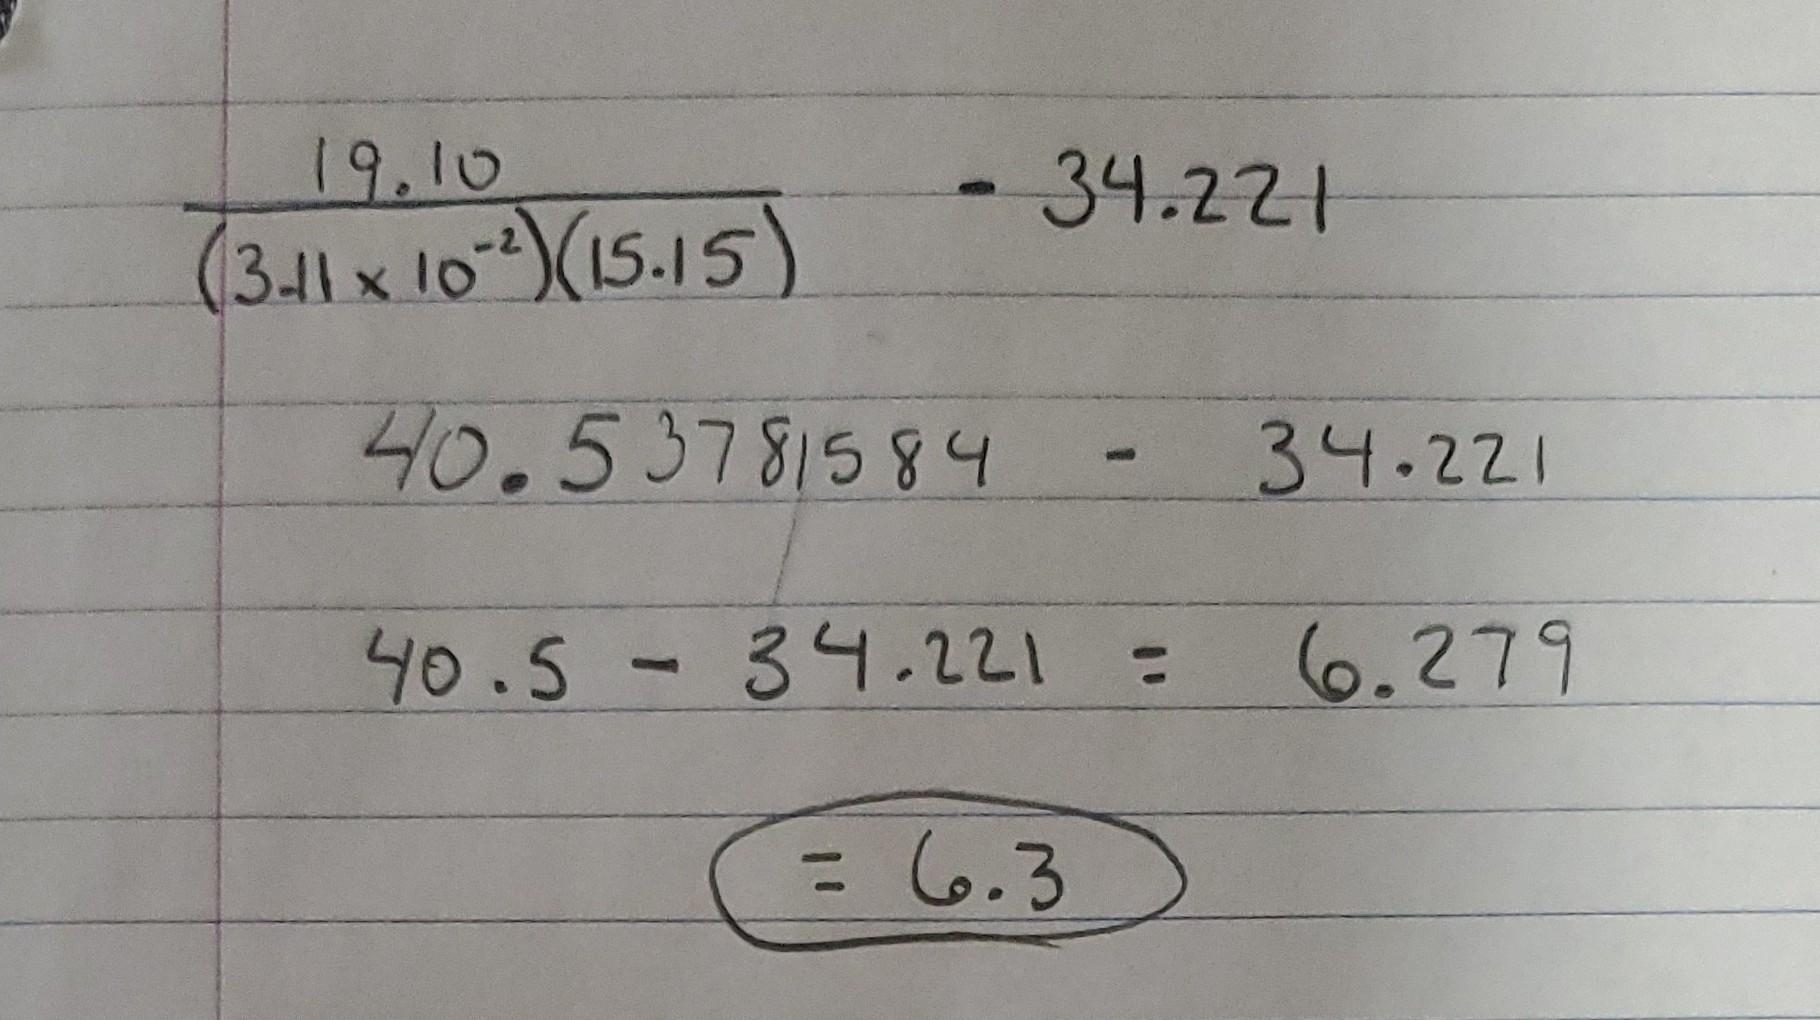 19.10
- 34.221
(3.11 x 10⁻²)(15.15)
40.53781584 - 34.221
40.5 - 34.221 = 6.279
= 6.3